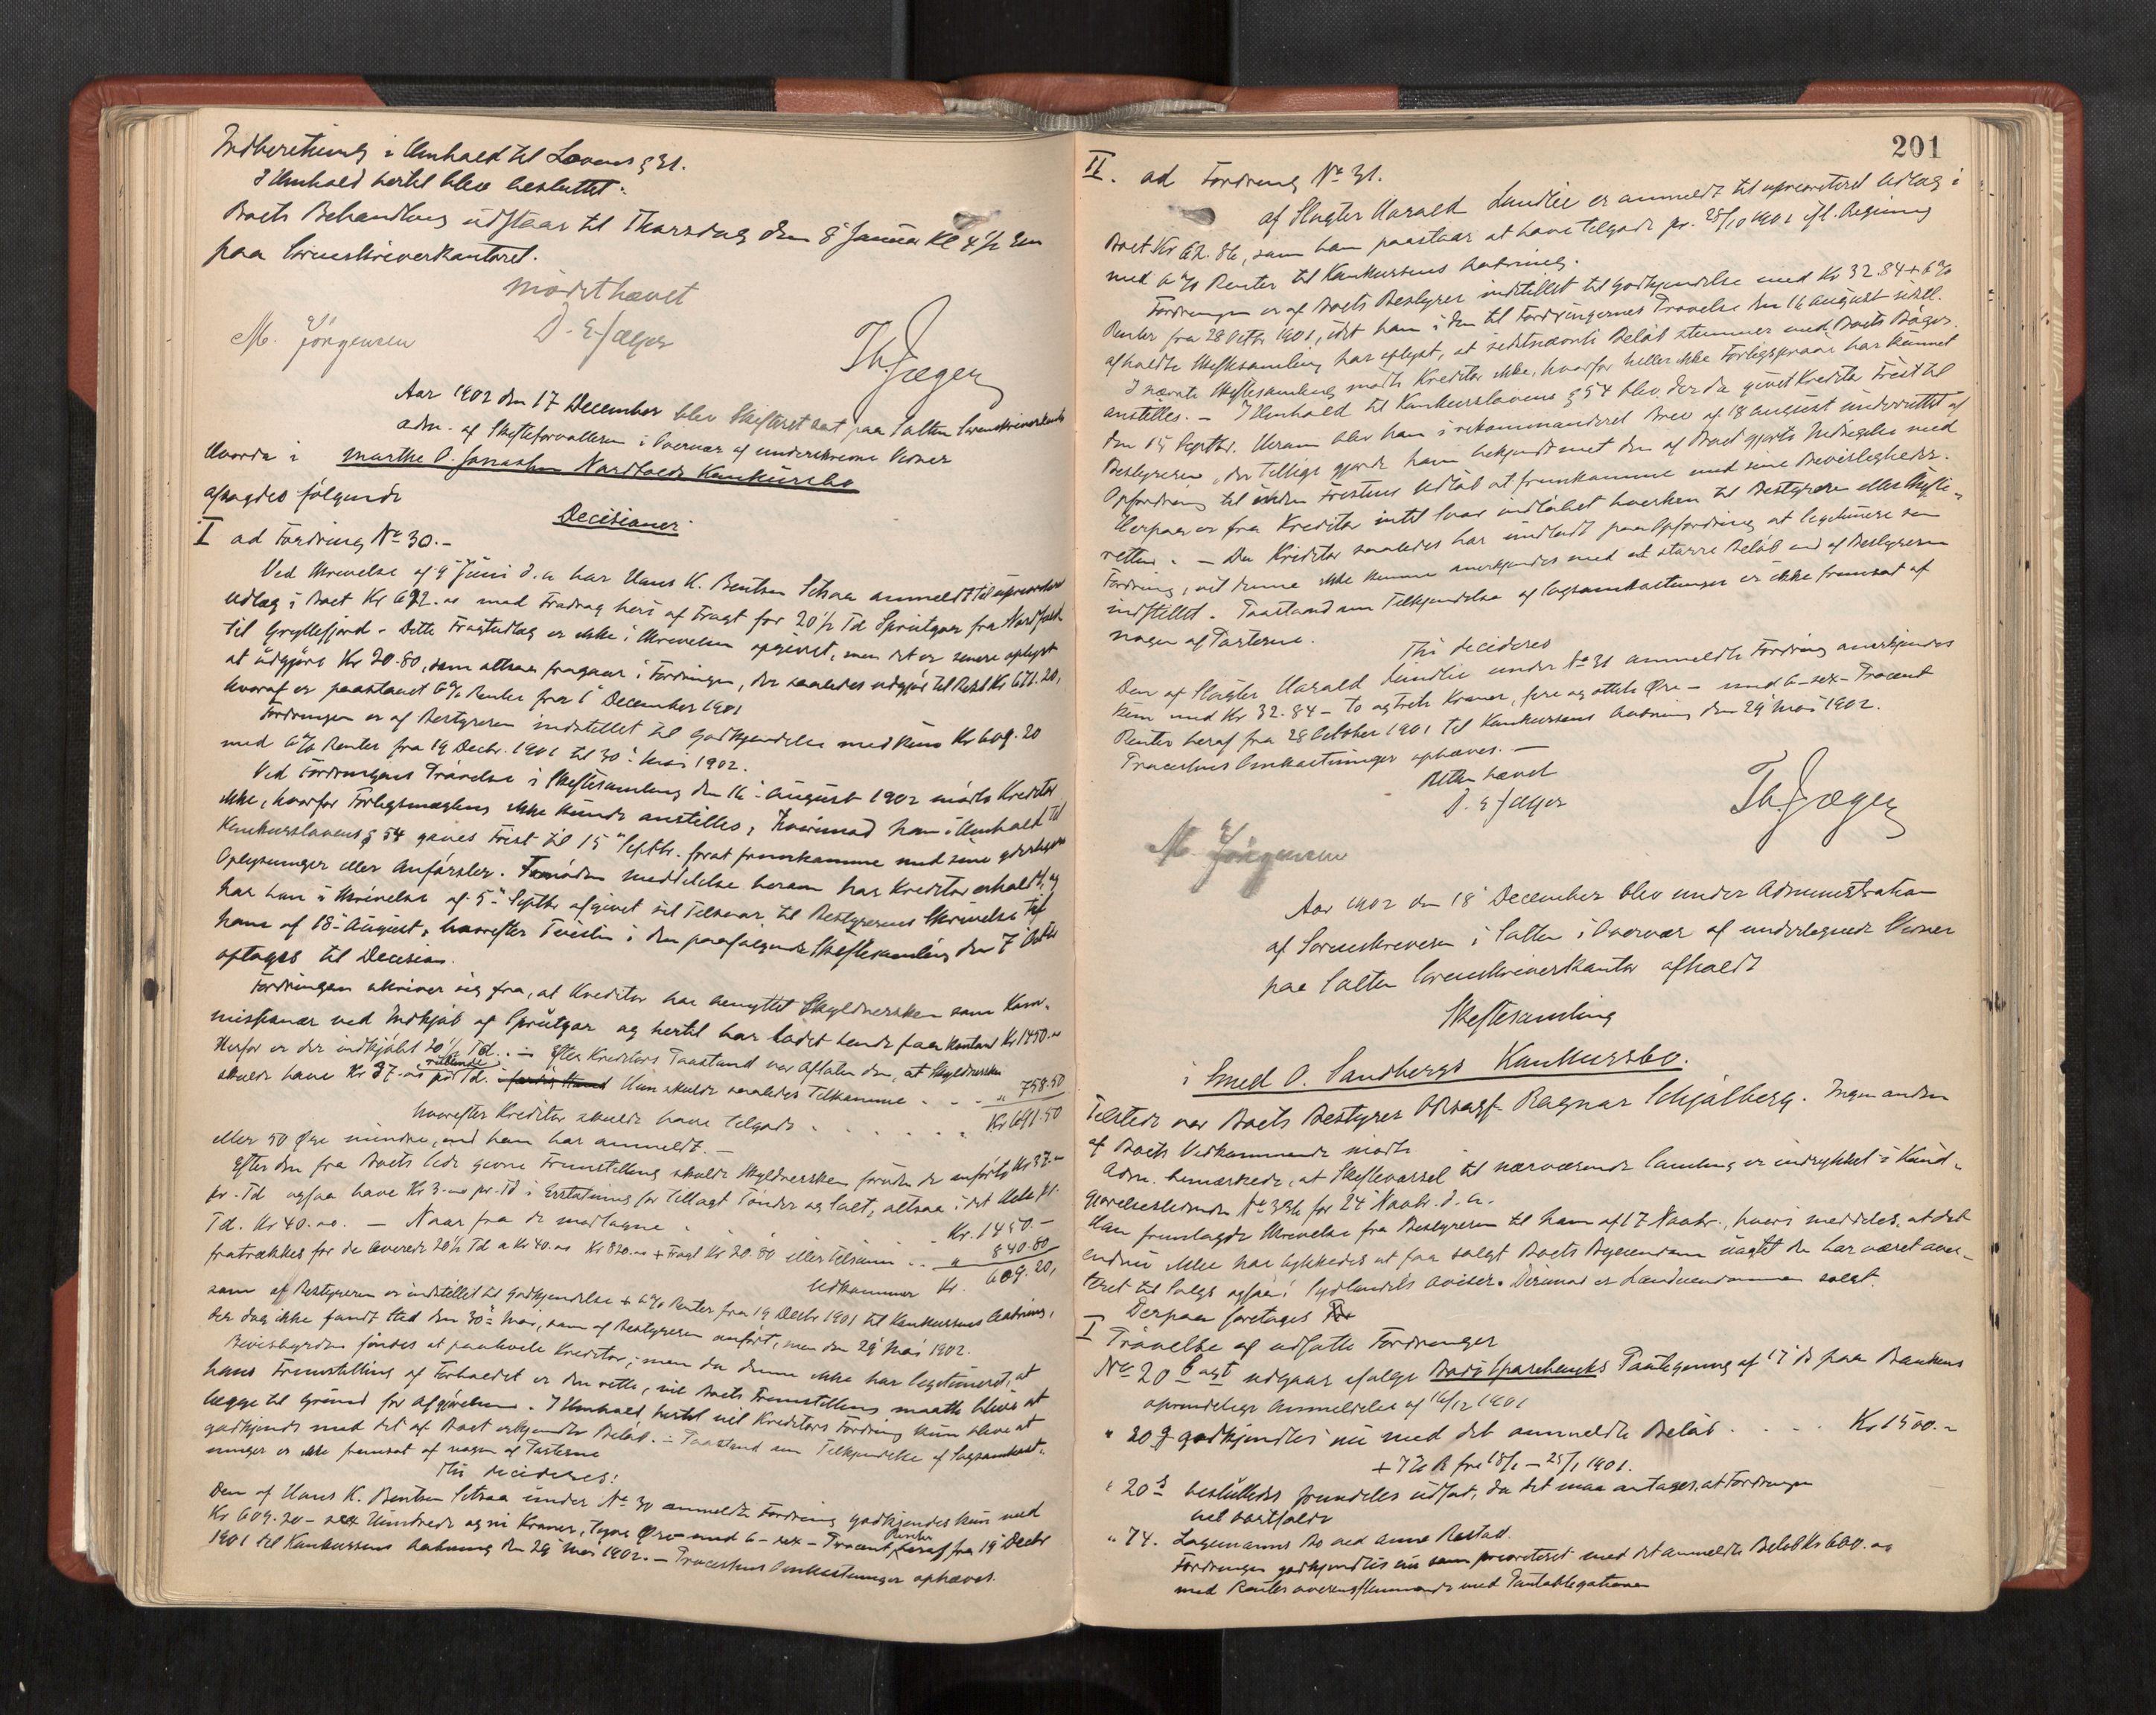 Indberetning i Henhold til Lovens § 31.
I Henhold hertil blev besluttet:
Boets Behandling udstaar til Thorsdag den 8 Januar Kl 4 1/2 Em
paa Sorenskriverkontoret.
Mødet hævet
M. Jörgensen D. E. Jæger Th. Jæger
Aar 1902 den 17 December blev Skifteret sat paa Salten Sorenskriverkontor
adm. af Skifteforvalteren i Overvær af underskrevne Vidner
Hvorda i Marthe O. Jonassen Nordfolds Konkursbo
afsagdes følgende
Decisioner
I ad Fordring No 30.-
Ved Skrivelse af 9 Juni d.a. har Hans K. Bentsen Sitsaa anmeldt til uprioriteret
Udlæg i Boet Kr 692.00 med Fradrag heri af Fragt for 20 1/2 Td Sprutgær fra Nordfold
til Gryllefjord. Dette Fragtudlæg er ikke i Skrivelsen opgivet, men det er senere oplyst
at udgjøre Kr 20.80, som altsaa fragaar i Fordringen, der saaledes udgjør til Rest Kr 671.20,
hvoraf er paastaaet 6% Renter fra 1 December 1901
Fordringen er af Bestyreren indstillet til Godkjendelse med kun Kr 609.20
med 6% Renter fra 19 Decbr. 1901 til 30 Mai 1902.
Ved Fordringens Prøvelse i Skiftesamling den 16 August 1902 mødte Kreditor
ikke, hvorfor Forligsmægling ikke kunde anstilles, hvorimod ham i Henhold til
Konkurslovens § 54 gaves Frist til 15 Septbr. forat fremkomme med sine yderligere
Oplysninger eller Anførsler. Fornøden Meddelelse herom har Kreditor erholdt, og
har han i Skrivelse af 5 Septbr afgivet sit Tilsvar til Bestyrerens Skrivelse til
ham af 18 August, hvorefter Tvisten i den paafølgende Skiftesamling den 7 Octbr
optoges til Decision.
Fordringen skriver sig fra, at Kreditor har benyttet Skyldnersken som Kom-
missionær ved Indkjøb af Sprutgær og hertil har ladet hende faa kontant Kr 1450.00
Herfor er der indkjøbt 20 1/2 Td. - Efter Kreditors Paastand var Aftalen den, at Skyldnersken
skulde have Kr 37.00 pr Td. Hun skulde saaledes tilkomme . . . " 758.50
hvorefter Kreditor skulde have tilgode . . . . . . Kr 691.50
eller 50 Øre mindre, end han har anmeldt.-
Efter den fra Boets Side givne Fremstilling skulde Skyldnersken foruden de anførte Kr 37.00
pr. Td ogsaa have Kr 3.00 pr. Td i Erstatning for tillagt Tønder og Salt, altsaa i det Hele pr.
Td. Kr 40.00. - Naar fra de modtagne . . . Kr. 1450.-
fratrækkes for de leverede 20 1/2 Td a Kr 40.00 Kr 820.00 + Fragt Kr 20.80 eller tilsammen . . " 840.80
Udkommer Kr. 609.20,
som af Bestyreren er indstillet til Godkjendelse + 6% Renter fra 19 Decbr 1901 til Konkursens Aabning,
der dog ikke fandt Sted den 30 Mai, som af Bestyreren anført, men den 29 Mai 1902.
Bevisbyrden findes at paahvile Kreditor; men da denne ikke har legitimeret, at
hans Fremstilling af Forholdet er den rette, vil Boets Fremstilling maatte blive at
lægge til Grund for Afgjørelsen. I Henhold hertil vil Kreditors Fordring kun blive at
godkjende med det af Boet erkjendte Beløb. - Paastand om Tilkjendelse af Sagsomkost-
ninger er ikke fremsat af nogen af Parterne
Thi decideres:
Den af Hans K. Bentsen Sitsaa under No 30 anmeldte Fordring godkjendes kun med
Kr 609.20 - sex Hundrede og ni Kroner, tyve Øre - med 6 - sex - Procent Renter heraf fra 19 Decbr
1901 til Konkursens Aabning den 29 Mai 1902. - Processens Omkostninger ophæves.
201
II. ad Fordring No 31.
af Slagter Harald Lundlie er anmeldt til uprioriteret Udlæg i
Boet Kr 62.86, som han paastaar at have tilgode pr. 28/10 1901 ifl. Regning
med 6% Renter til Konkursens Aabning.
Fordringen er af Boets Bestyrer indstillet til Godkjendelse med Kr 32.84 + 6%
Renter fra 28 Octbr 1901, idet han i den til Fordringernes Prøvelse den 16 August sidstl.
afholdte Skiftesamling har oplyst, at sidstnævnte Beløb stemmer med Boets Bøger.
I nævnte Skiftesamling mødte Kreditor ikke, hvorfor heller ikke Forligsprøve har kunnet
anstilles. - I Henhold til Konkurslovens § 54 blev der da givet Kreditor Frist til
den 15 Septbr. Herom blev han i rekommanderet Brev af 18 August underrettet af
Bestyreren, der tillige gjorde ham bekjendt med den af Boet gjorte Indsigelse med
Opfordring til inden Fristens Udløb at fremkomme med sine Bevisligheder.
Herpaa er fra Kreditor intet Svar indløbet hverken til Bestyrer eller Skifte-
retten. - Da Kreditor saaledes har undladt paa Opfordring at legitimere sin
Fordring, vil denne ikke kunne anerkjendes med et større Beløb end af Bestyreren
indstillet. Paastand om Tilkjendelse af Sagsomkostninger er ikke fremsat af
nogen af Parterne.
Thi decideres
Den af Slagter Harald Lundlie under No 31 anmeldte Fordring anerkjendes
kun med Kr 32.84 - to og treti Kroner, fire og otteti Øre - med 6 - sex - Procent
Renter heraf fra 28 October 1901 til Konkursens Aabning den 29 Mai 1902.
Processens Omkostninger ophæves. -
Retten hævet
D. E. Jæger Th. Jæger
M. Jörgensen
Aar 1902 den 18 December blev under Administration
af Sorenskriveren i Salten i Overvær af undertegnede Vidner
paa Salten Sorenskriverkontor afholdt
Skiftesamling
i Smed O. Sandbergs Konkursbo.
Tilstede var Boets Bestyrer ORsagf. Ragnar Schjølberg. Ingen anden
af Boets Vedkommende mødte
Adm. bemærkede, at Skiftevarsel til nærværende Samling er indrykket i Kund-
gjørelsestidende No 336 for 24 Novbr. d. a.
Han fremlagde Skrivelse fra Bestyreren til ham af 17 Novbr., hvori meddeles, at det
endnu ikke har lykkedes at faa solgt Boets Byeiendom uagtet den har været aver-
teret til Salgs ogsaa i Sydlandets Aviser. Derimod er Landeiendommen solgt.
Derpaa foretoges
I Prøvelse af udsatte Fordringer
No 20 b og f udgaar ifølge Bodø Sparebanks Paategning af 17 ds paa Bankens
oprindelige Anmeldelse af 16/12 1901
" 20 g godkjendtes nu med det anmeldte Beløb . . . . Kr 1500.-
" 20 besluttedes fremdeles udsat, da det maa antages, at Fordringen
vil bortfalde
" 74. Lagmanns Bo ved Anne Rostad.
Fordringen godkjendtes nu som prioriteret med det anmeldte Beløb Kr 600.00
med Renter overensstemmende med Panteobligationen